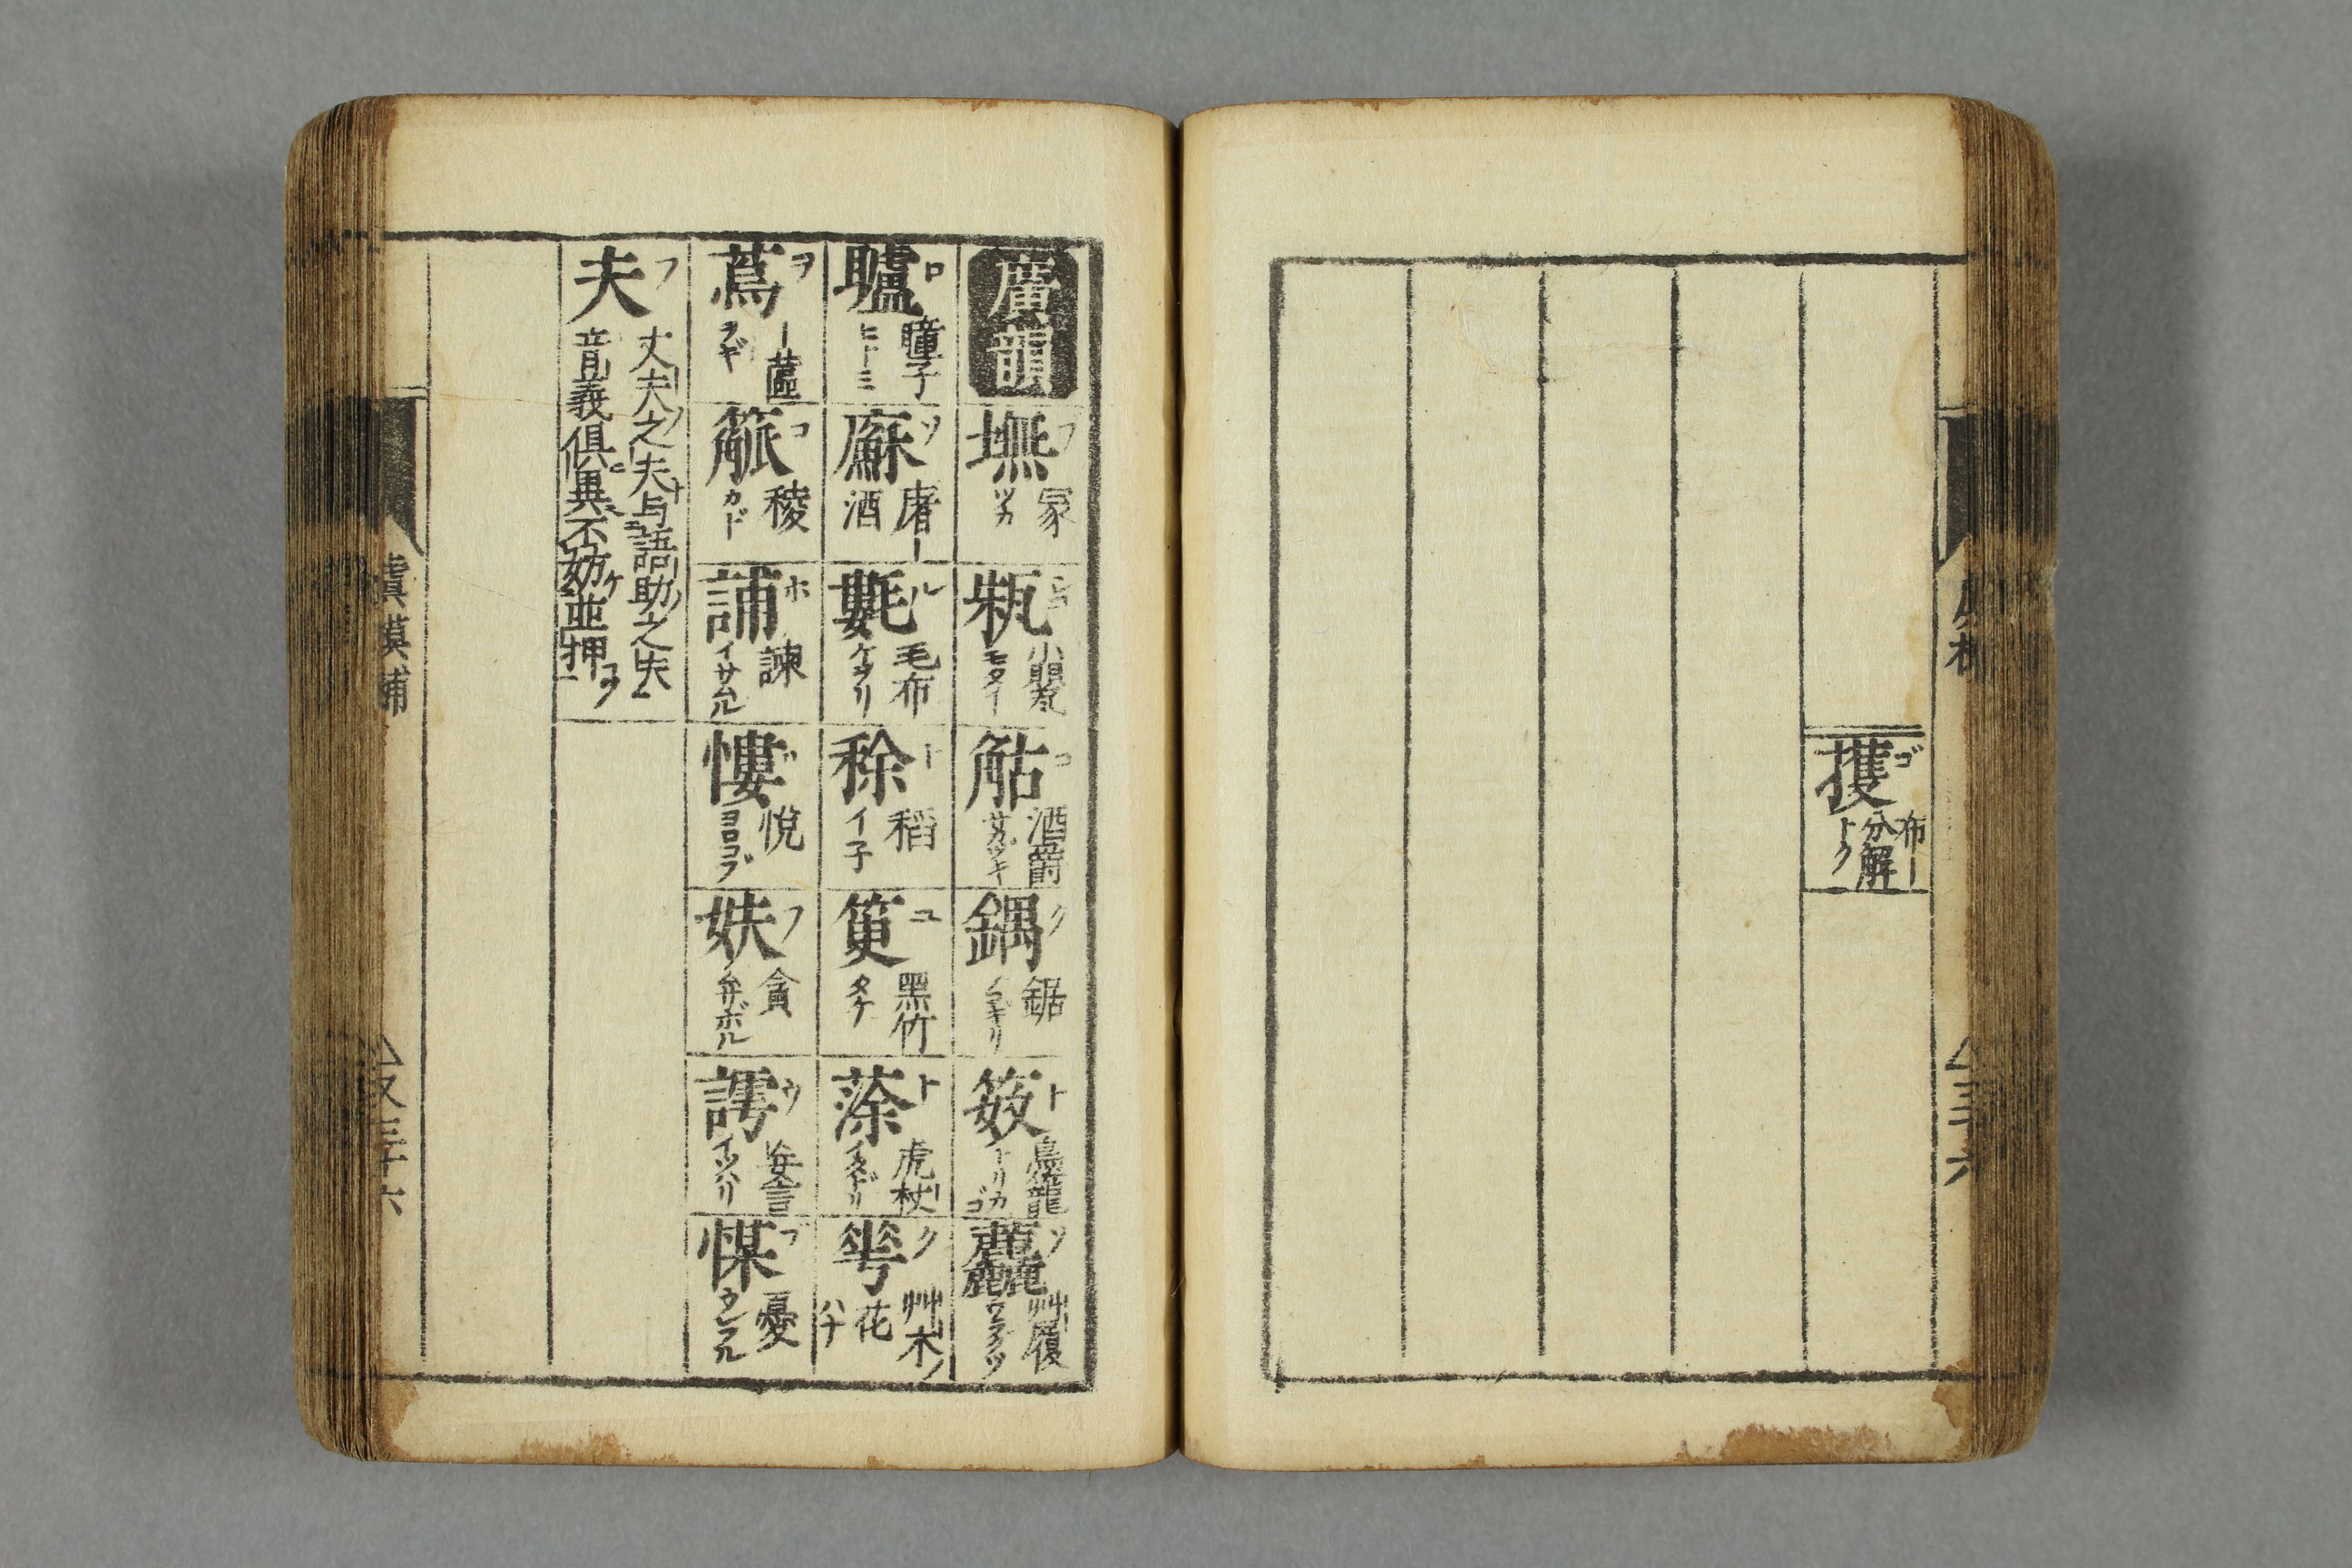 擭 ゴ 布ー分解 トク
廣韻
墲 フ 冢 ツカ
㼡 小甖 モタイ
𧣡 コ 酒爵 サカヅキ
鍝 グ 鋸 ノコギリ
笯 ト 鳥籠 トリカゴ
麤 ソ 艸履 ワラグツ
矑 ロ 瞳子 ヒトミ
廯 ソ 屠ー 酒
氀 ル 毛布 ケヲリ
稌 ト 稻 イ子
䔺 ユ 黑竹 タケ
蒤 ト 虎杖 イタドリ
荂 ク 艸木ノ花 ハナ
蔦 ヲ ー蓲 ヲギ
觚 コ 稜 カド
誧 ホ 諫 イサムル
慺 ル 悅 ヨロコブ
妋 フ 貪 ムサボル
謣 ウ 妄言 イツハリ
㦄 ブ 憂 ウレフル
夫 フ 丈夫之夫与語助之夫
音義俱異不妨並押
虞模補